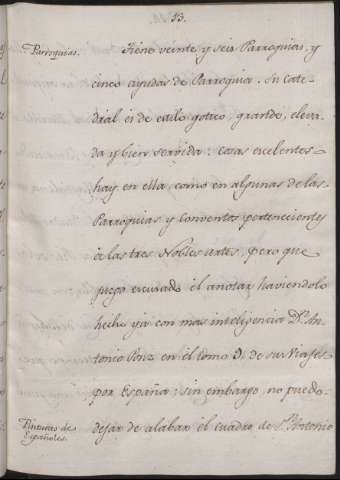 13.
Parroquias.
Tiene veinte y seis Parroquias, y
cinco ayudas de Parroquia. Su cate-
dral es de estilo gotico, grande, eleva-
da y bien servida: cosas excelentes
hay en ella, como en algunas de las
Parroquias y Conventos pertenecientes
à las tres Nobles artes, pero que
juzgo escusado el anotar haviendolo
hecho ya con mas inteligencia Dn. An-
tonio Ponz en el tomo 9. de sus Viajes
por España: sin embargo no puedo
Pinturas de
Españoles.
dejar de alabar el cuadro de Sn. Antonio